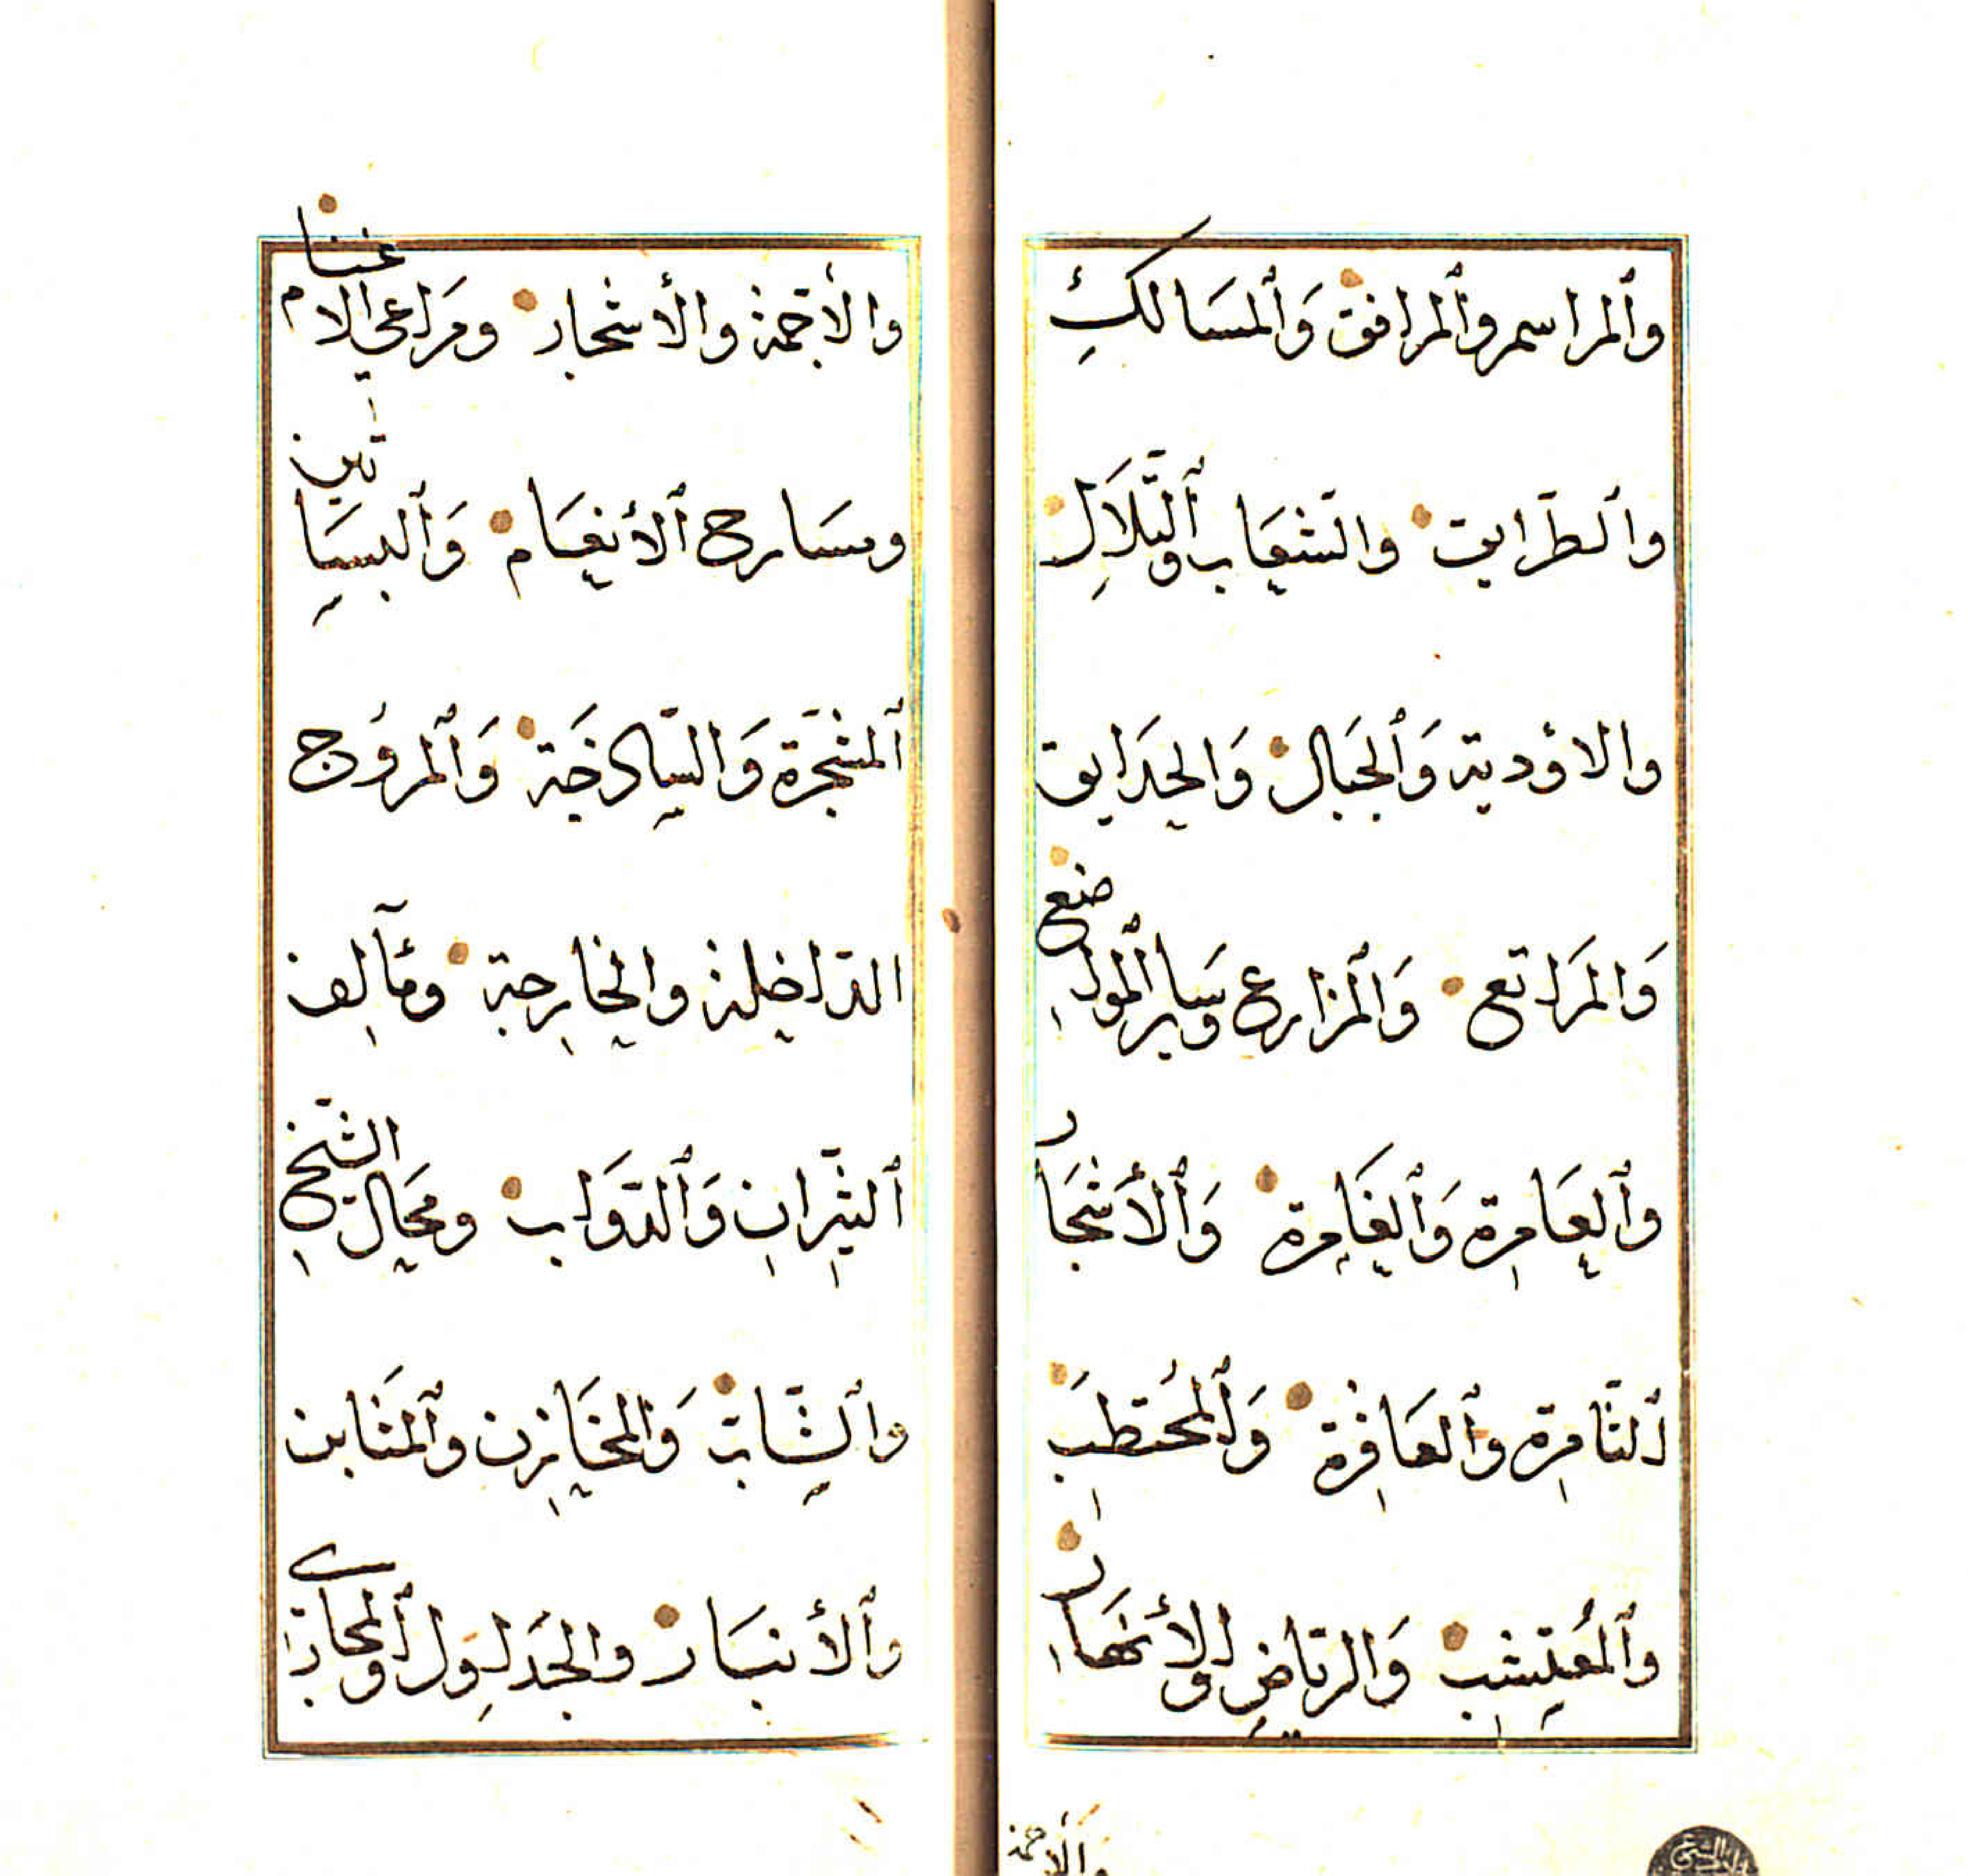 وٱلمراسم وٱلمرافق وَٱلمسَالكِ
وٱلطرايق والشعَاب وٱلتّلَالِ
والاؤدية وَٱلجبَال وَالحدَايق
وَالمرَاتع وَٱلمزارع وسَاير ٱلمواضع
وٱلعَامِرة وَٱلغَامِرة وَٱلأشجَار
ٱلثَّامِرة وٱلعَافِرة وَٱلمحُتطِبَ
وٱلمُعتِشب وَالرّيَاضِ والأنهَار
والأجمة والأشجار ومَراعي الاغنام
ومسَارح ٱلأنعَام وَٱلبسَاتين
ٱلمشجّرة وَالسّاذخَة وَٱلمروُج
الدّاخِلة والخَارِجة ومَآلِف
ٱلثِّيرانِ وَٱلدّوَاب ومحَال الشّخ
وٱلشَّاتِ وَالمخَازِن وٱلمثَابن
وٱلأنبَار والجدَاوِل وٱلمجَاري
والاجمة